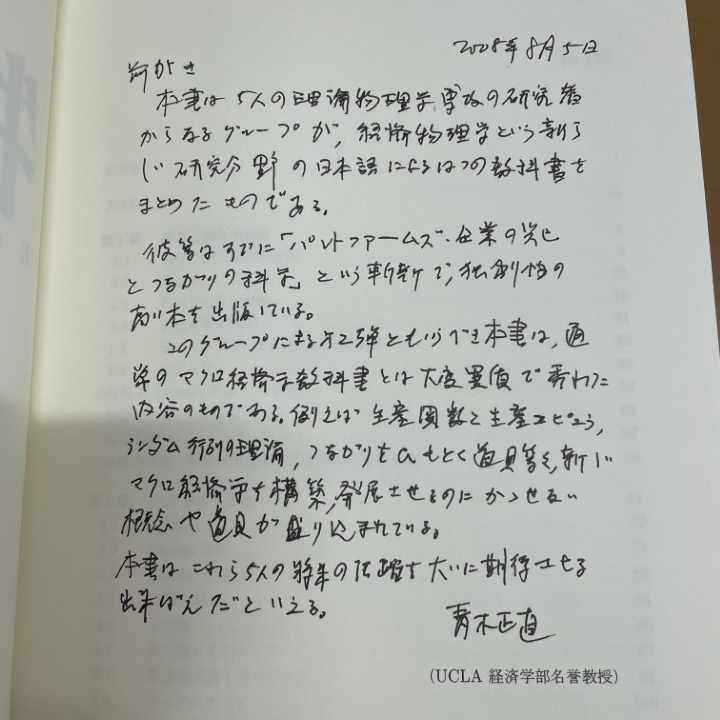 2008年8月5日
前がき
本書は5人の理論物理学専攻の研究者
からなるグループが、経済物理学という新ら
しい研究分野の日本語によるはつの教科書を
まとめたものである。
彼等はすでに「パレートファームズ・企業の興亡
とつながりの科学」という斬新で、独創性の
高い本を出版している。
このグループによる第2弾ともいうべき本書は、通
常のマクロ経済学教科書とは大変異質で変わった
内容のものである。例えば生産関数と生産コピュラ、
ランダム行列の理論、つながりをひもとく道具等々、新しい
マクロ経済学を構築、発展させるのにかかせない
概念や道具が盛り込まれている。
本書はこれら5人の将来の活躍を大いに期待させる
出来ばえだといえる。
青木正直
(UCLA 経済学部名誉教授)